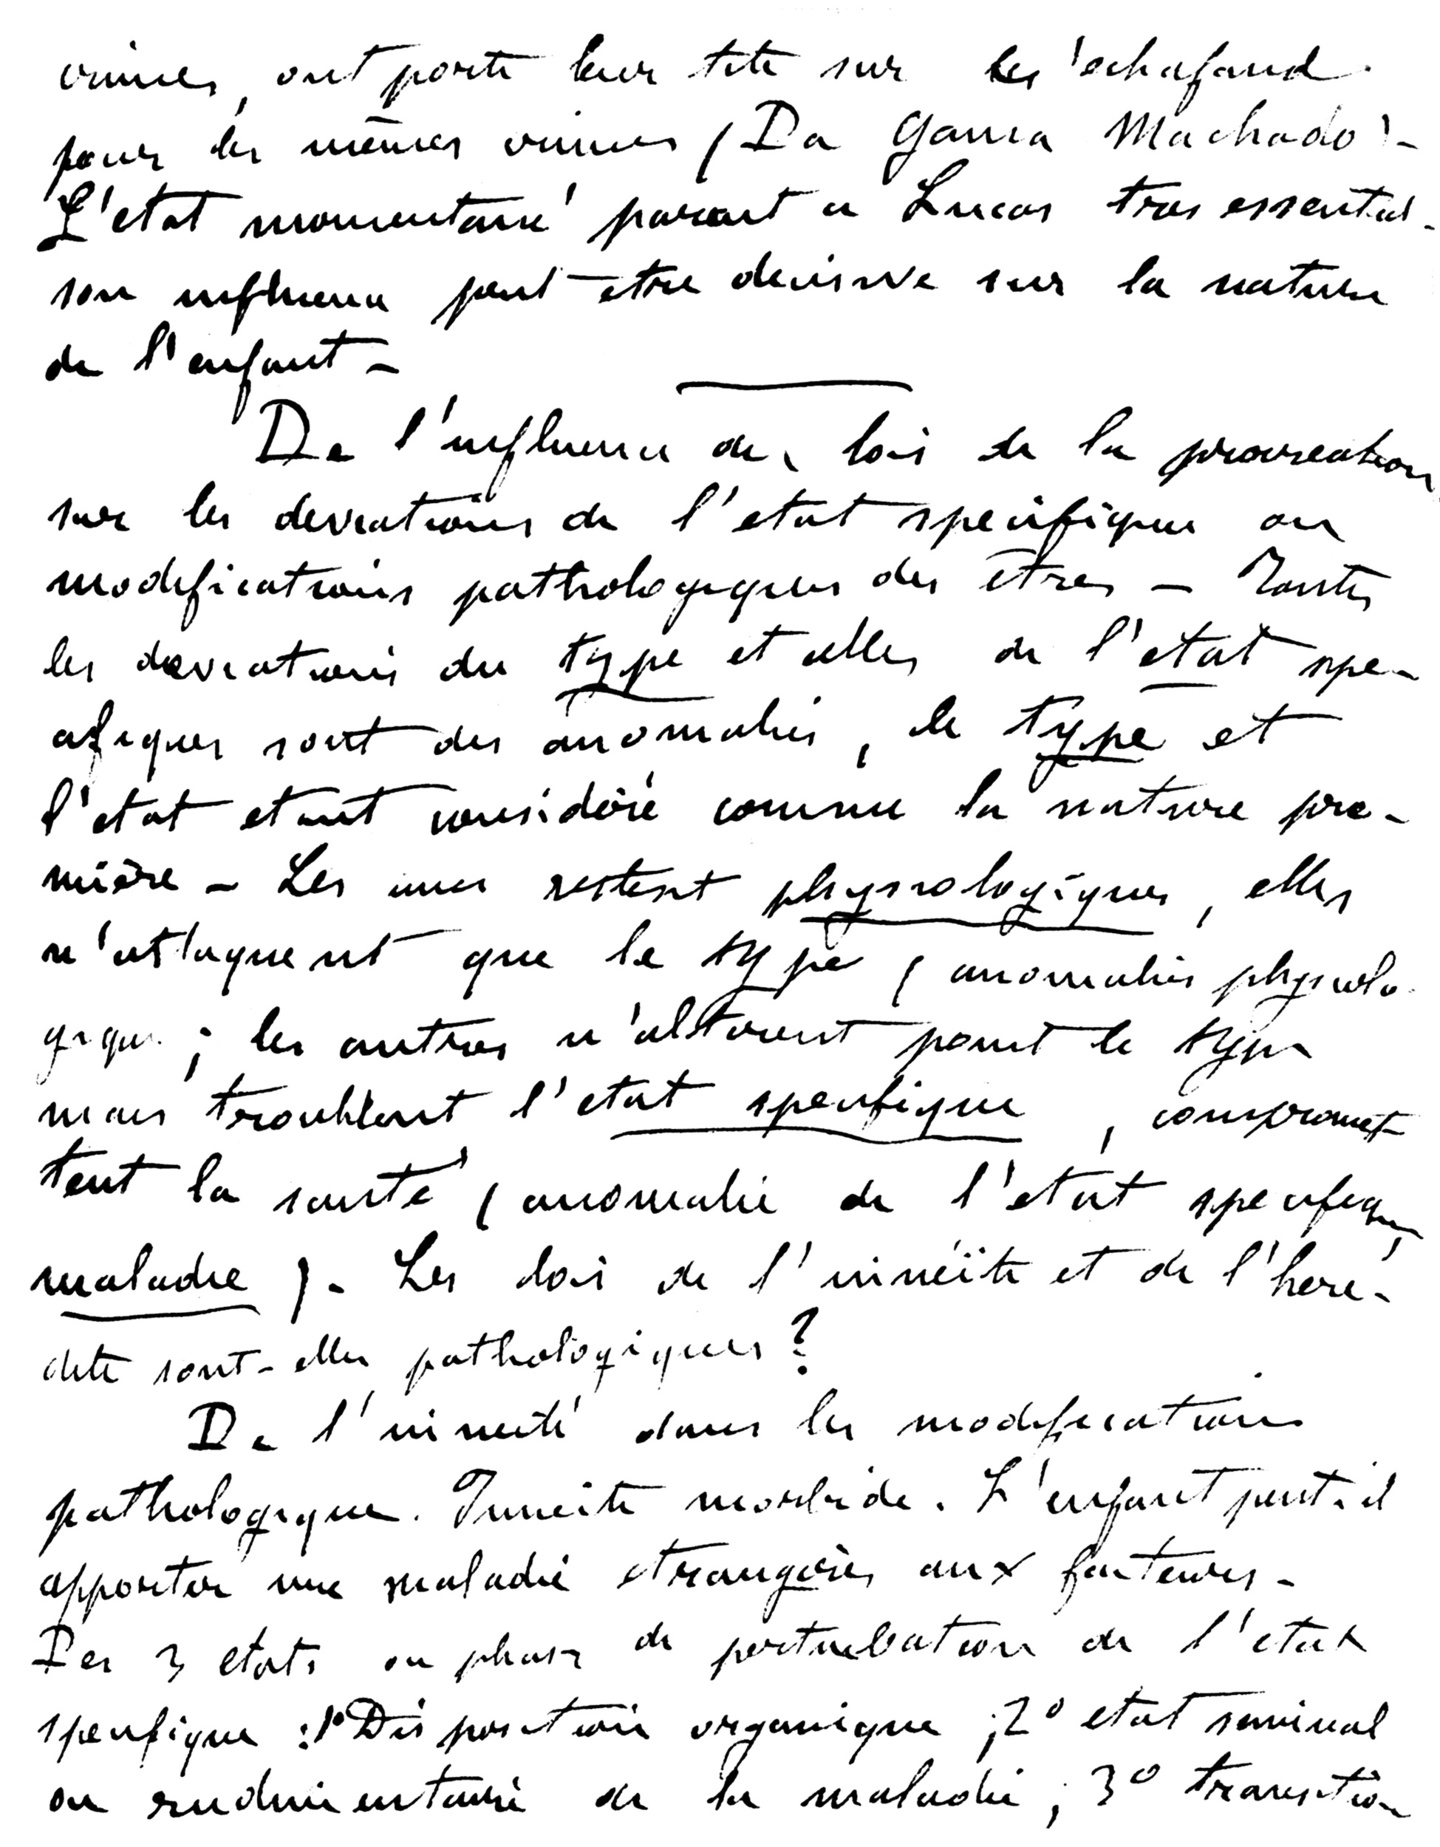 crimes, ont porté leur tete sur les echafaud
pour les mêmes crimes (Da Gama Machado) -
L'etat momentané parait a Lucas tres essentiel -
son influence peut etre decisive sur la nature
de l'enfant -
De l'influence des lois de la procreation
sur les deviations de l'etat specifique ou
modifications pathologiques des etres - Toutes
les deviations du type et celles de l'etat spe-
cifiques sont des anomalies, le type et
l'etat etant considéré comme la nature pre-
mière - Les unes restent physiologiques, elles
n'attaquent que le type (anomalies physiolo-
gique ; les autres n'alterent point le type
mais troublent l'etat specifique, compromet-
tent la santé (anomalie de l'etat specifique,
maladie). - Les lois de l'innéite et de l'héré-
dite sont-elles pathologiques ?
De l'inneité dans les modifications
pathologique. Inneite morbide. L'enfant peut-il
apporter une maladie etrangères aux facteurs -
Des 3 etats ou phases de perturbation de l'etat
specifique : 1° Disposition organique ; 2° etat seminal
ou rudimentaire de la maladie ; 3° transition